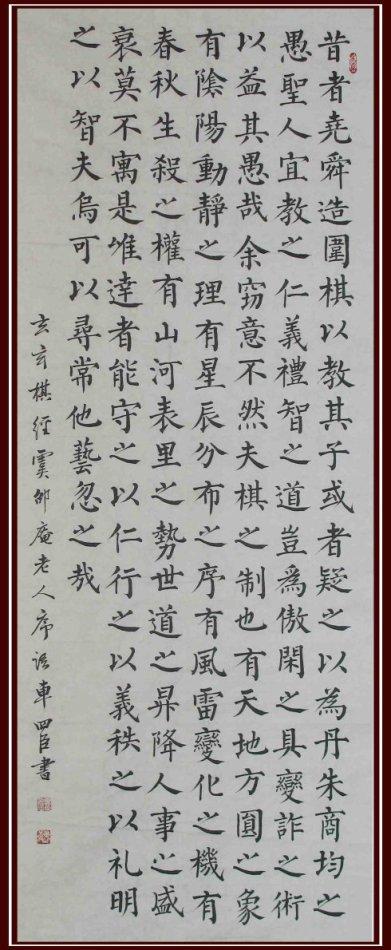 昔者堯舜造圍棋以教其子或者疑之以為丹朱商均之
愚聖人宜教之仁義禮智之道豈為傲閑之具變詐之術
以益其愚哉余窃意不然夫棋之制也有天地方圓之象
有陰陽動靜之理有星辰分布之序有風雷變化之機有
春秋生殺之權有山河表里之勢世道之昇降人事之盛
衰莫不寓是惟達者能守之以仁行之以義秩之以礼明
之以智夫烏可以尋常他藝忽之哉
玄玄棋經虞邵庵老人序語車四臣書